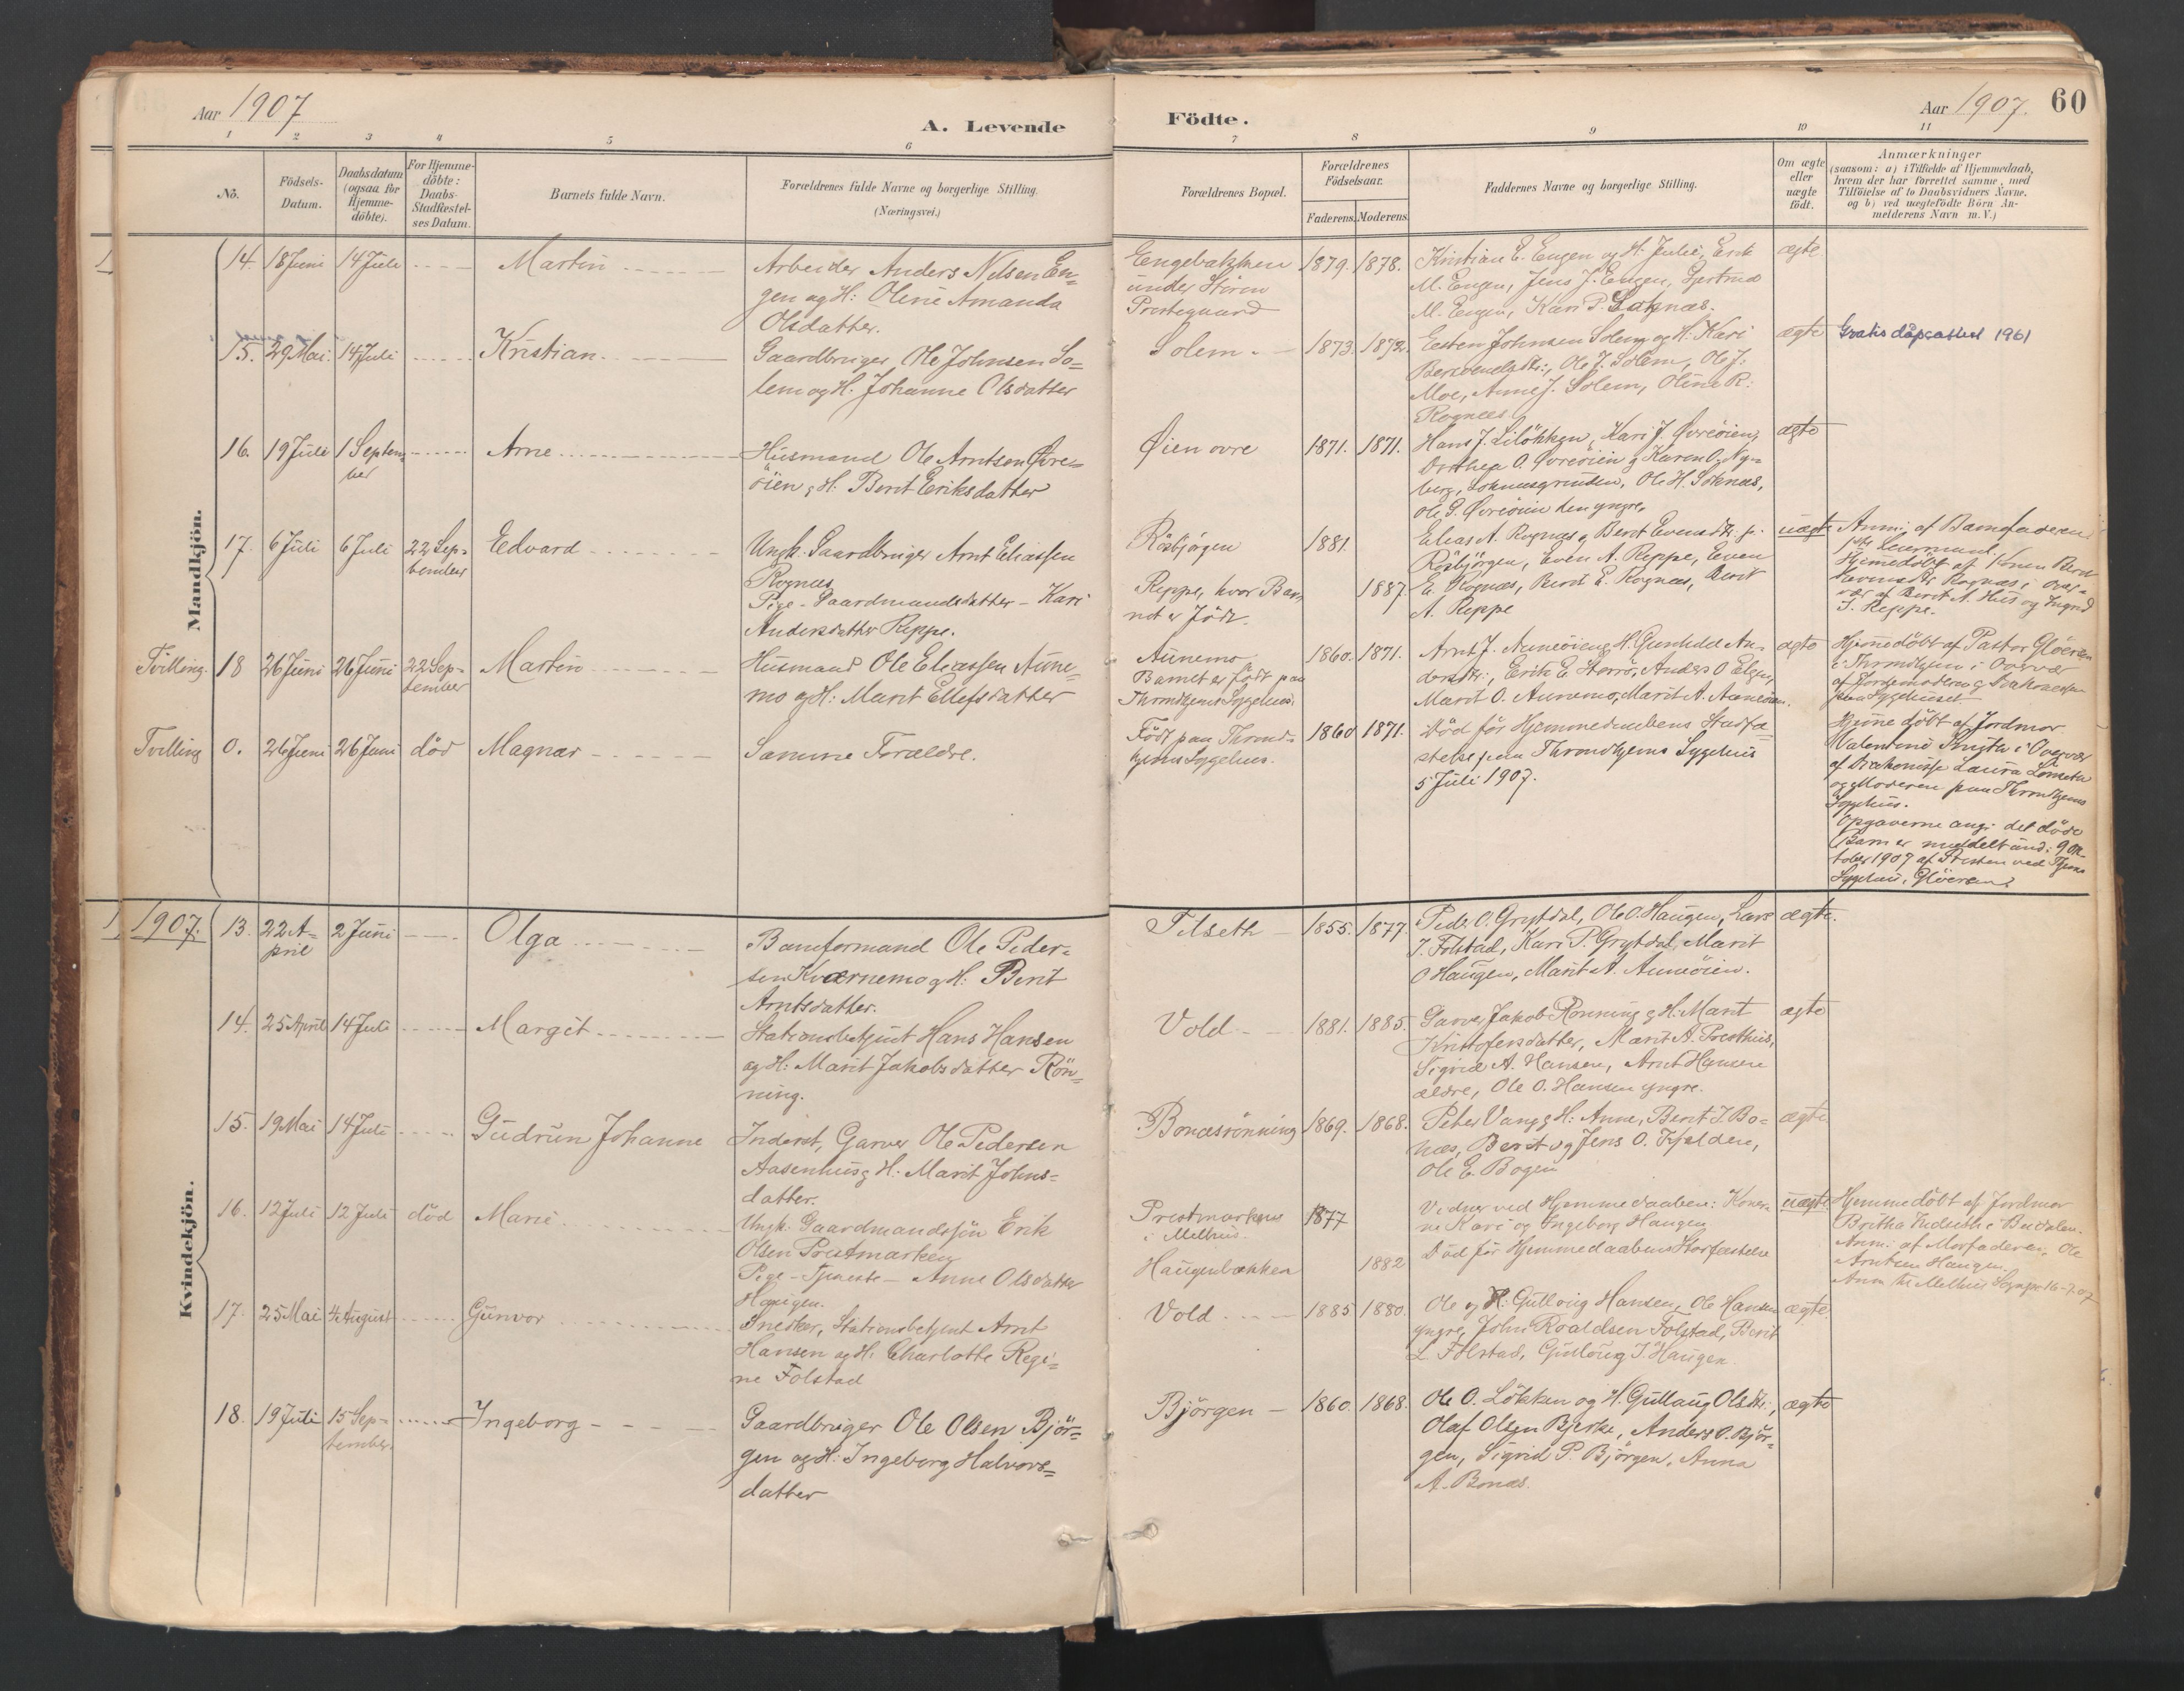 Aar 1907
A. Levende
Födte.
Aar 1907.
60
1
2
3
4
5
6
7
8
9
10
11
No.
Födsels-
Datum.
Daabsdatum
(ogsaa for
Hjemme-
döbte).
For Hjemme-
döbte:
Daabs-
Stadfæstel-
ses Datum.
Barnets fulde Navn.
Forældrenes fulde Navne og borgerlige Stilling.
(Næringsvei.)
Forældrenes Bopæl.
Forældrenes
Födselsaar.
Faderens.
Moderens.
Faddernes Navne og borgerlige Stilling.
Om ægte
eller
uægte
födt.
Anmærkninger
(saasom: a) i Tilfælde af Hjemmedaab,
hvem der har forrettet samme, med
Tilföielse af to Daabsvidners Navne,
og b) ved uægtefödte Börn An-
melderens Navn m. V.)
Mandkjön.
14. 18 Juni 14 Juli
Martin
Arbeider Anders Nilsen En=
gen og H: Oline Amanda
Olsdatter.
Engebakken
under Stören
Prestegaard
1879. 1878.
Kristian E. Engen og H. Julie, Erik
M. Engen, Jens J. Engen, Gjertrud
M. Engen, Kari P. Soknæs.
ægte
15. 29 Mai. 14 Juli
Kristian.
Gaardbruger Ole Johnsen So=
lem og H. Johanne Olsdatter
Solem.
1873. 1872.
Esten Johnsen Solem og H: Kari
Ole J. Solem, Ole J.
Moe, Anne J. Solem, Oline R.
Rognæs
ægte
Gratis dåpsattest 1961
16. 19 Juli 1 Septem=
ber
Arne
Husmand Ole Arntsen Övre=
öien og H: Berit Eriksdatter
Öien övre
1871. 1871.
Hans J. Lilökken, Kari J. Övreöien,
Dorthea O. Övreöien og Karen O. Ny=
berg, Soknæsgrinden, Ole H. Soknæs,
Ole G. Övreöien den yngre.
ægte
17. 6 Juli 6 Juli 22 Sep=
tember
Edvard
Ungk. Gaardbruger Arnt Eliassen
Rognæs
Pige - Gaardmandsdatter - Kari
Andersdatter Reppe.
Rösbjörgen
Reppe, hvor Bar=
net er födt.
1881.
1887.
Elias A. Rognæs og Berit Evensdtr. p.
Rösbjörgen, Even A. Reppe, Even
E. Rognæs, Berit E. Rognæs, Berit
A. Reppe
uægte
Anm: af Barnefaderen
Hjemmedöbt af Konen Berit
Evensdtr. Rognæs i Over=
vær af Berit A. Hus og Ingrid
J. Reppe.
Tvilling. 18 26 Juni 26 Juni 22 Sep=
tember
Martin
Husmand Ole Eliassen Aune=
mo og H: Marit Ellefsdatter
Aunemo
Barnet er födt paa
Throndhjems Sygehus.
1860. 1871.
Arnt J. Auneöien og H. Gunhild An=
dersdtr., Erik E. Storrö, Anders O. Elgen,
Marit O. Aunemo, Marit A. Auneöien.
ægte
Hjemmedöbt af Pastor Glöersen
i Throndhjem i Overvær
af Jordemoderen og Diakonissen
paa Sygehuset.
Tvilling 0. 26 Juni 26 Juni död
Magnar
Samme Forældre.
Födt paa Thrond=
hjems Sygehus.
1860 1871.
Död för Hjemmedaabens Stadfæ=
stelse paa Throndhjems Sygehus
5 Juli 1907.
Hjemmedöbt af Jordmor
Valentine i Overvær
af Diakonisse Laura
og Moderen paa Throndhjems
Sygehus.
Opgaverne ang. det döde
Barn er meddelt und. 9 Ok=
tober 1907 af Presten ved Thjems
Sygehus, Glöersen.
Kvindekjön.
1907. 13. 22 A=
pril 2 Juni
Olga
Baneformand Ole Peder=
sen Kværnemo og H: Berit
Arntsdatter.
Tilseth
1855. 1877.
Peder O. Grytdal, Ole O. Haugen, Lars
J. Folstad, Kari P. Grytdal, Marit
O. Haugen, Marit A. Auneöien.
ægte.
14. 25 April 14 Juli
Margit
Stationsbetjent Hans Hansen
og H: Marit Jakobsdatter Rön=
ning.
Vold
1881. 1885.
Garver Jakob Rönning og H: Marit
Kristofersdatter, Marit A. Presthus,
Sigrid A. Hansen, Arnt Hansen
ældre, Ole O. Hansen yngre.
ægte
15. 19 Mai 14 Juli
Gudrun Johanne
Inderst, Garver Ole Pedersen
Aasenhus og H: Marit Johns=
datter.
Bonæsrönning
1869. 1868.
Peter Vang og H: Anne, Berit J. Bo=
næs, Berit og Jens O. Kjelden,
Ole E. Bogen
ægte
16. 12 Juli 12 Juli död
Marie
Ungk. Gaardmandssön Erik
Olsen Prestmarken
Pige - Tjeneste - Anne Olsdatter
Haugen.
Prestmarken
i Melhus.
Haugenbakken
1877
1882
Vidner ved Hjemmedaaben: Koner=
ne Kari og Ingeborg Haugen
Död för Hjemmedaabens Stadfæstelse
uægte.
Hjemmedöbt af Jordmor
Britha i Budalen.
Anm: af Morfaderen, Ole
Arntsen Haugen.
Anm. til Melhus Sogneprest 16-7-07
17. 25 Mai 4 August
Gunvor
Snedker, Stationsbetjent Arnt
Hansen og H: Charlotte Regi=
ne Folstad
Vold
1885 1880.
Ole og H: Gulloug Hansen, Ole Hansen
yngre, John Roaldsen Folstad, Berit
L. Folstad, Gulloug J. Haugen.
ægte.
18. 19 Juli 15 Sep=
tember.
Ingeborg
Gaardbruger Ole Olsen Björ=
gen og H: Ingeborg Halvors=
datter
Björgen
1860. 1868.
Ole O. Lökken og H. Gullaug Olsdtr.,
Olaf Olsen Bjerke, Anders O. Björ=
gen, Sigrid P. Björgen, Anna
A. Bonæs.
ægte